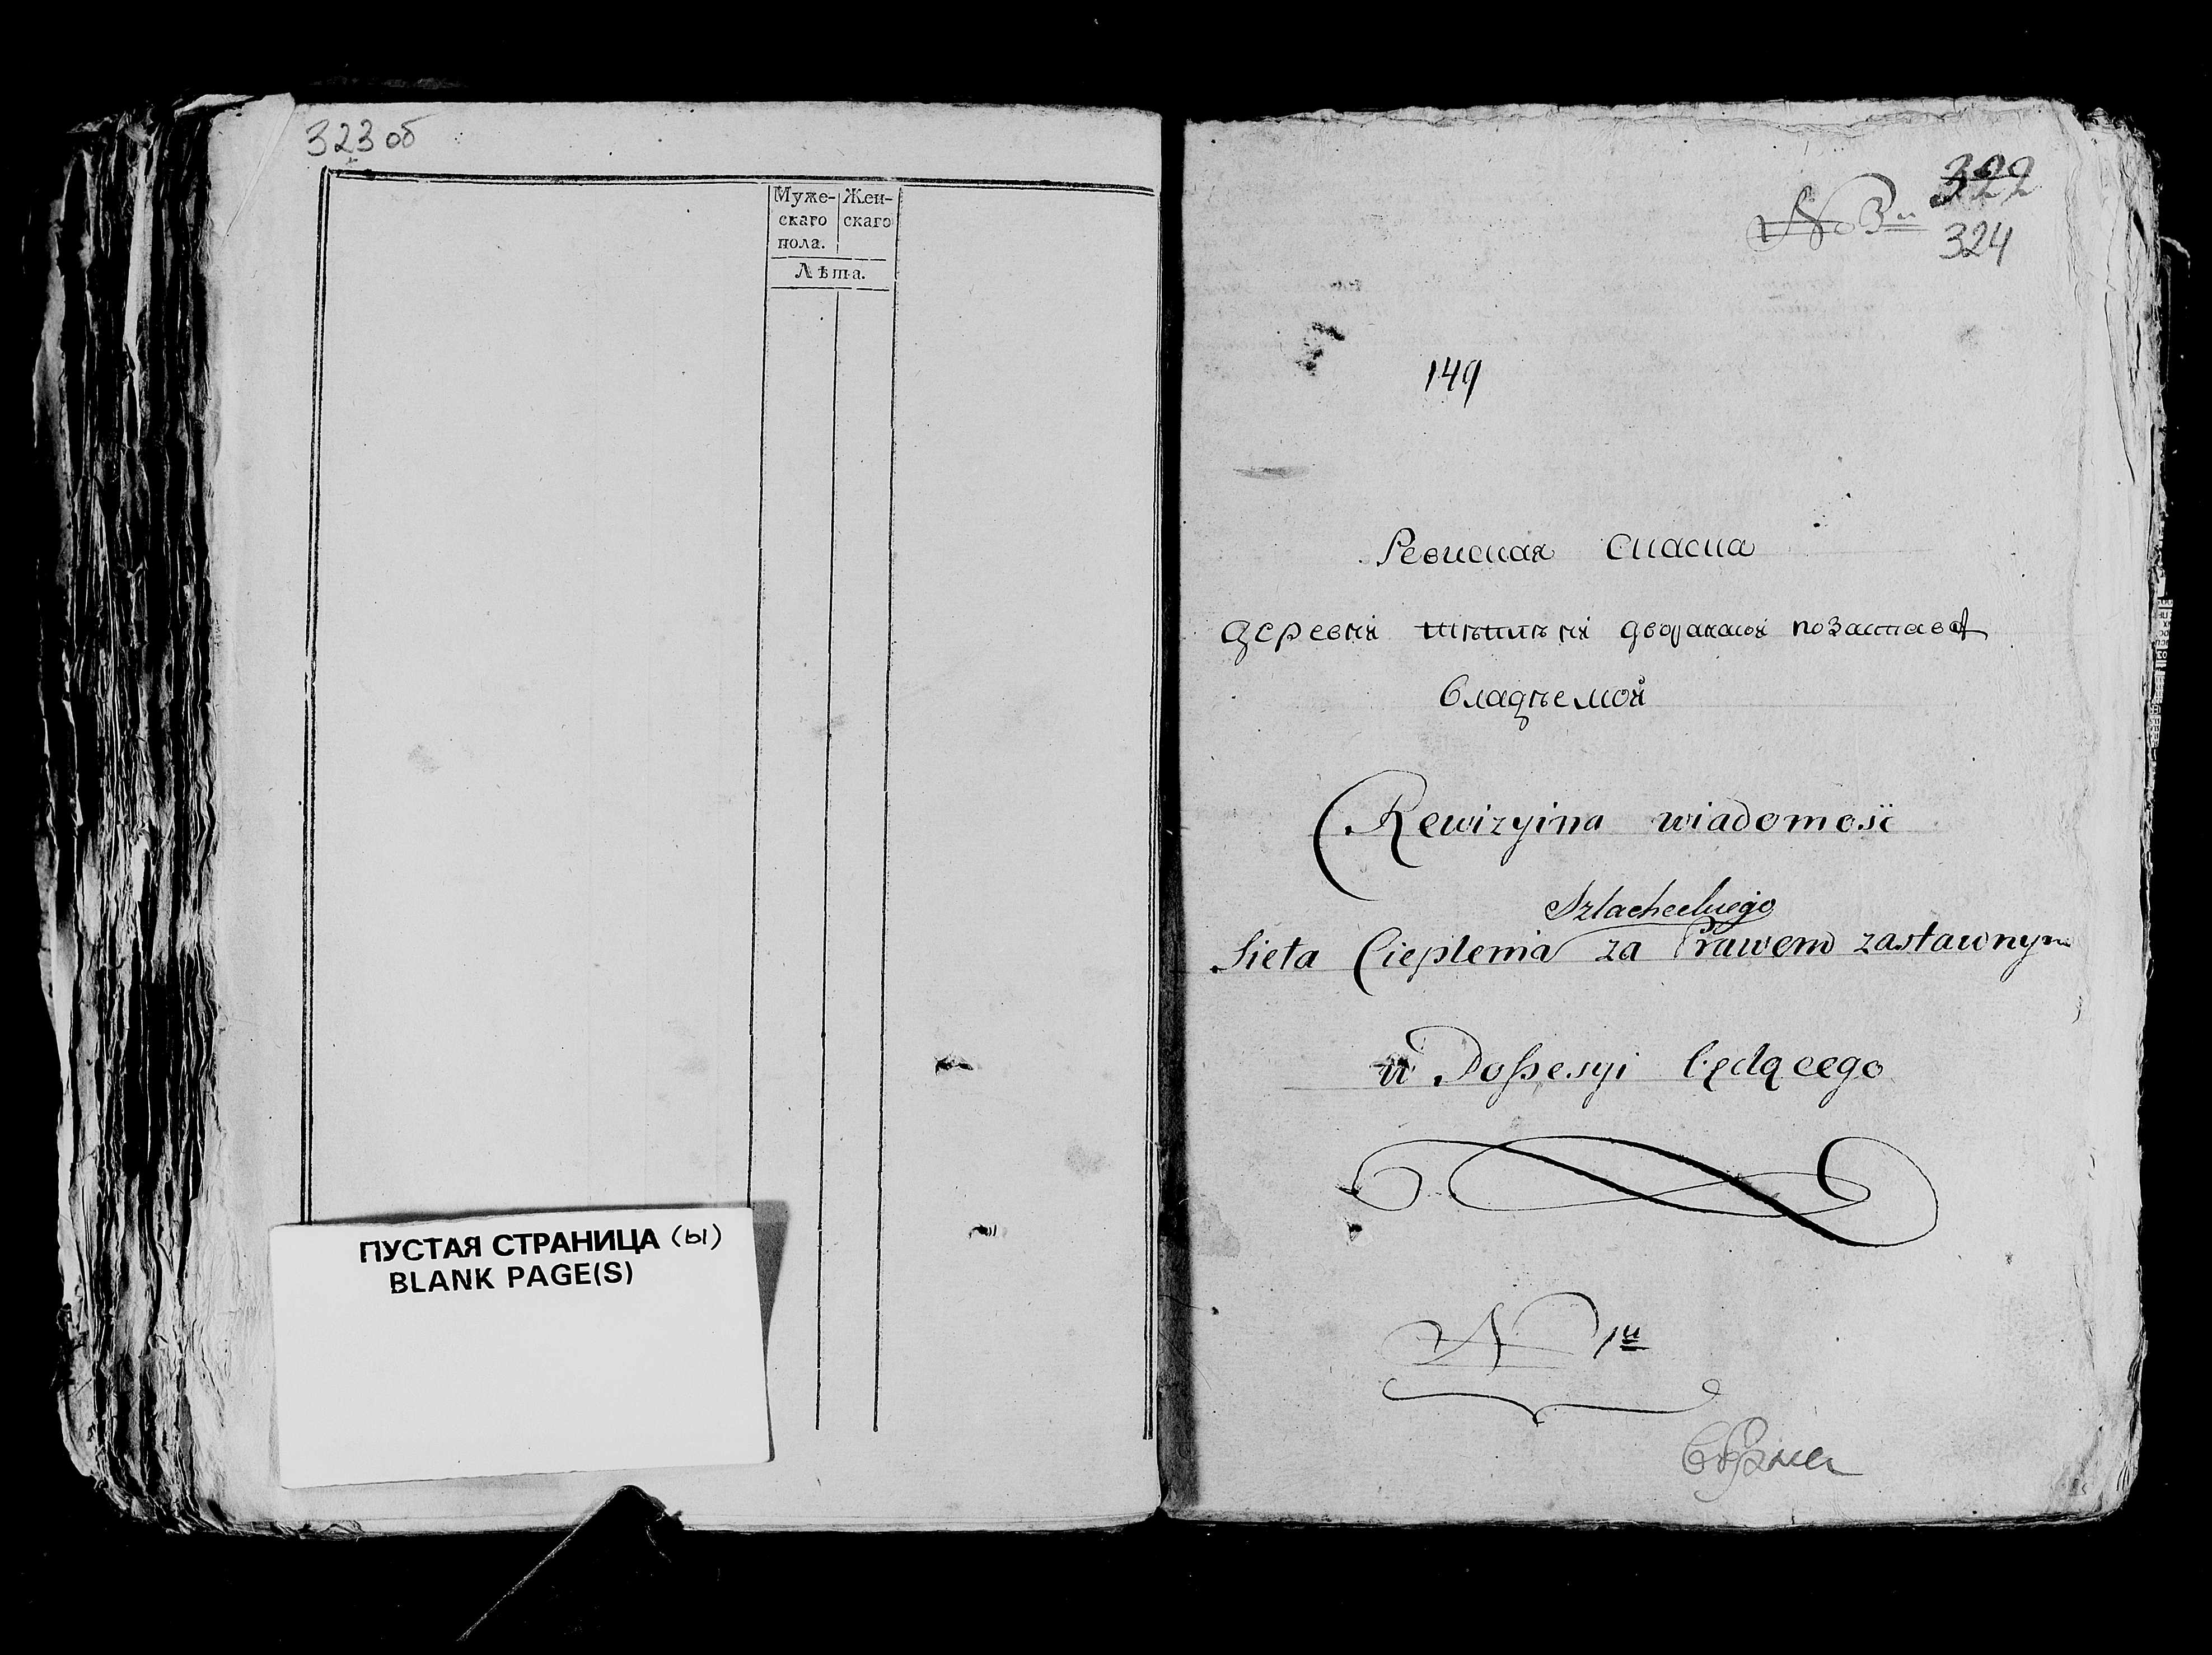 323 об
Муже- Жен-
скаго скаго
пола.
Лѣта.
ПУСТАЯ СТРАНИЦА (ы)
BLANK PAGE(S)
322
№ 3
324
149
Ревиская Сказка
деревни дворакой по заставѣ
владѣемой
Rewizyina wiadomość
Szlacheckiego
Sieła Cieplenia za Prawem zastawnym
w Poßesyi będącego
N 1